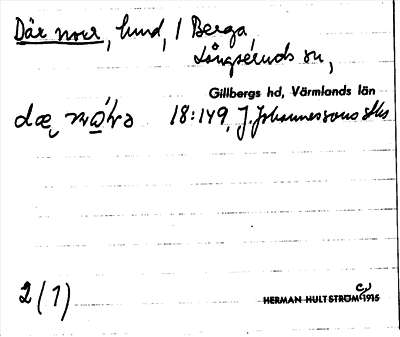 Där norr, hmd, i Berga,
Långseruds sn,
Gillbergs hd, Värmlands län
18:149, J. Johannessons skss
2 (1)
HERMAN HULTSTRÖM 1915